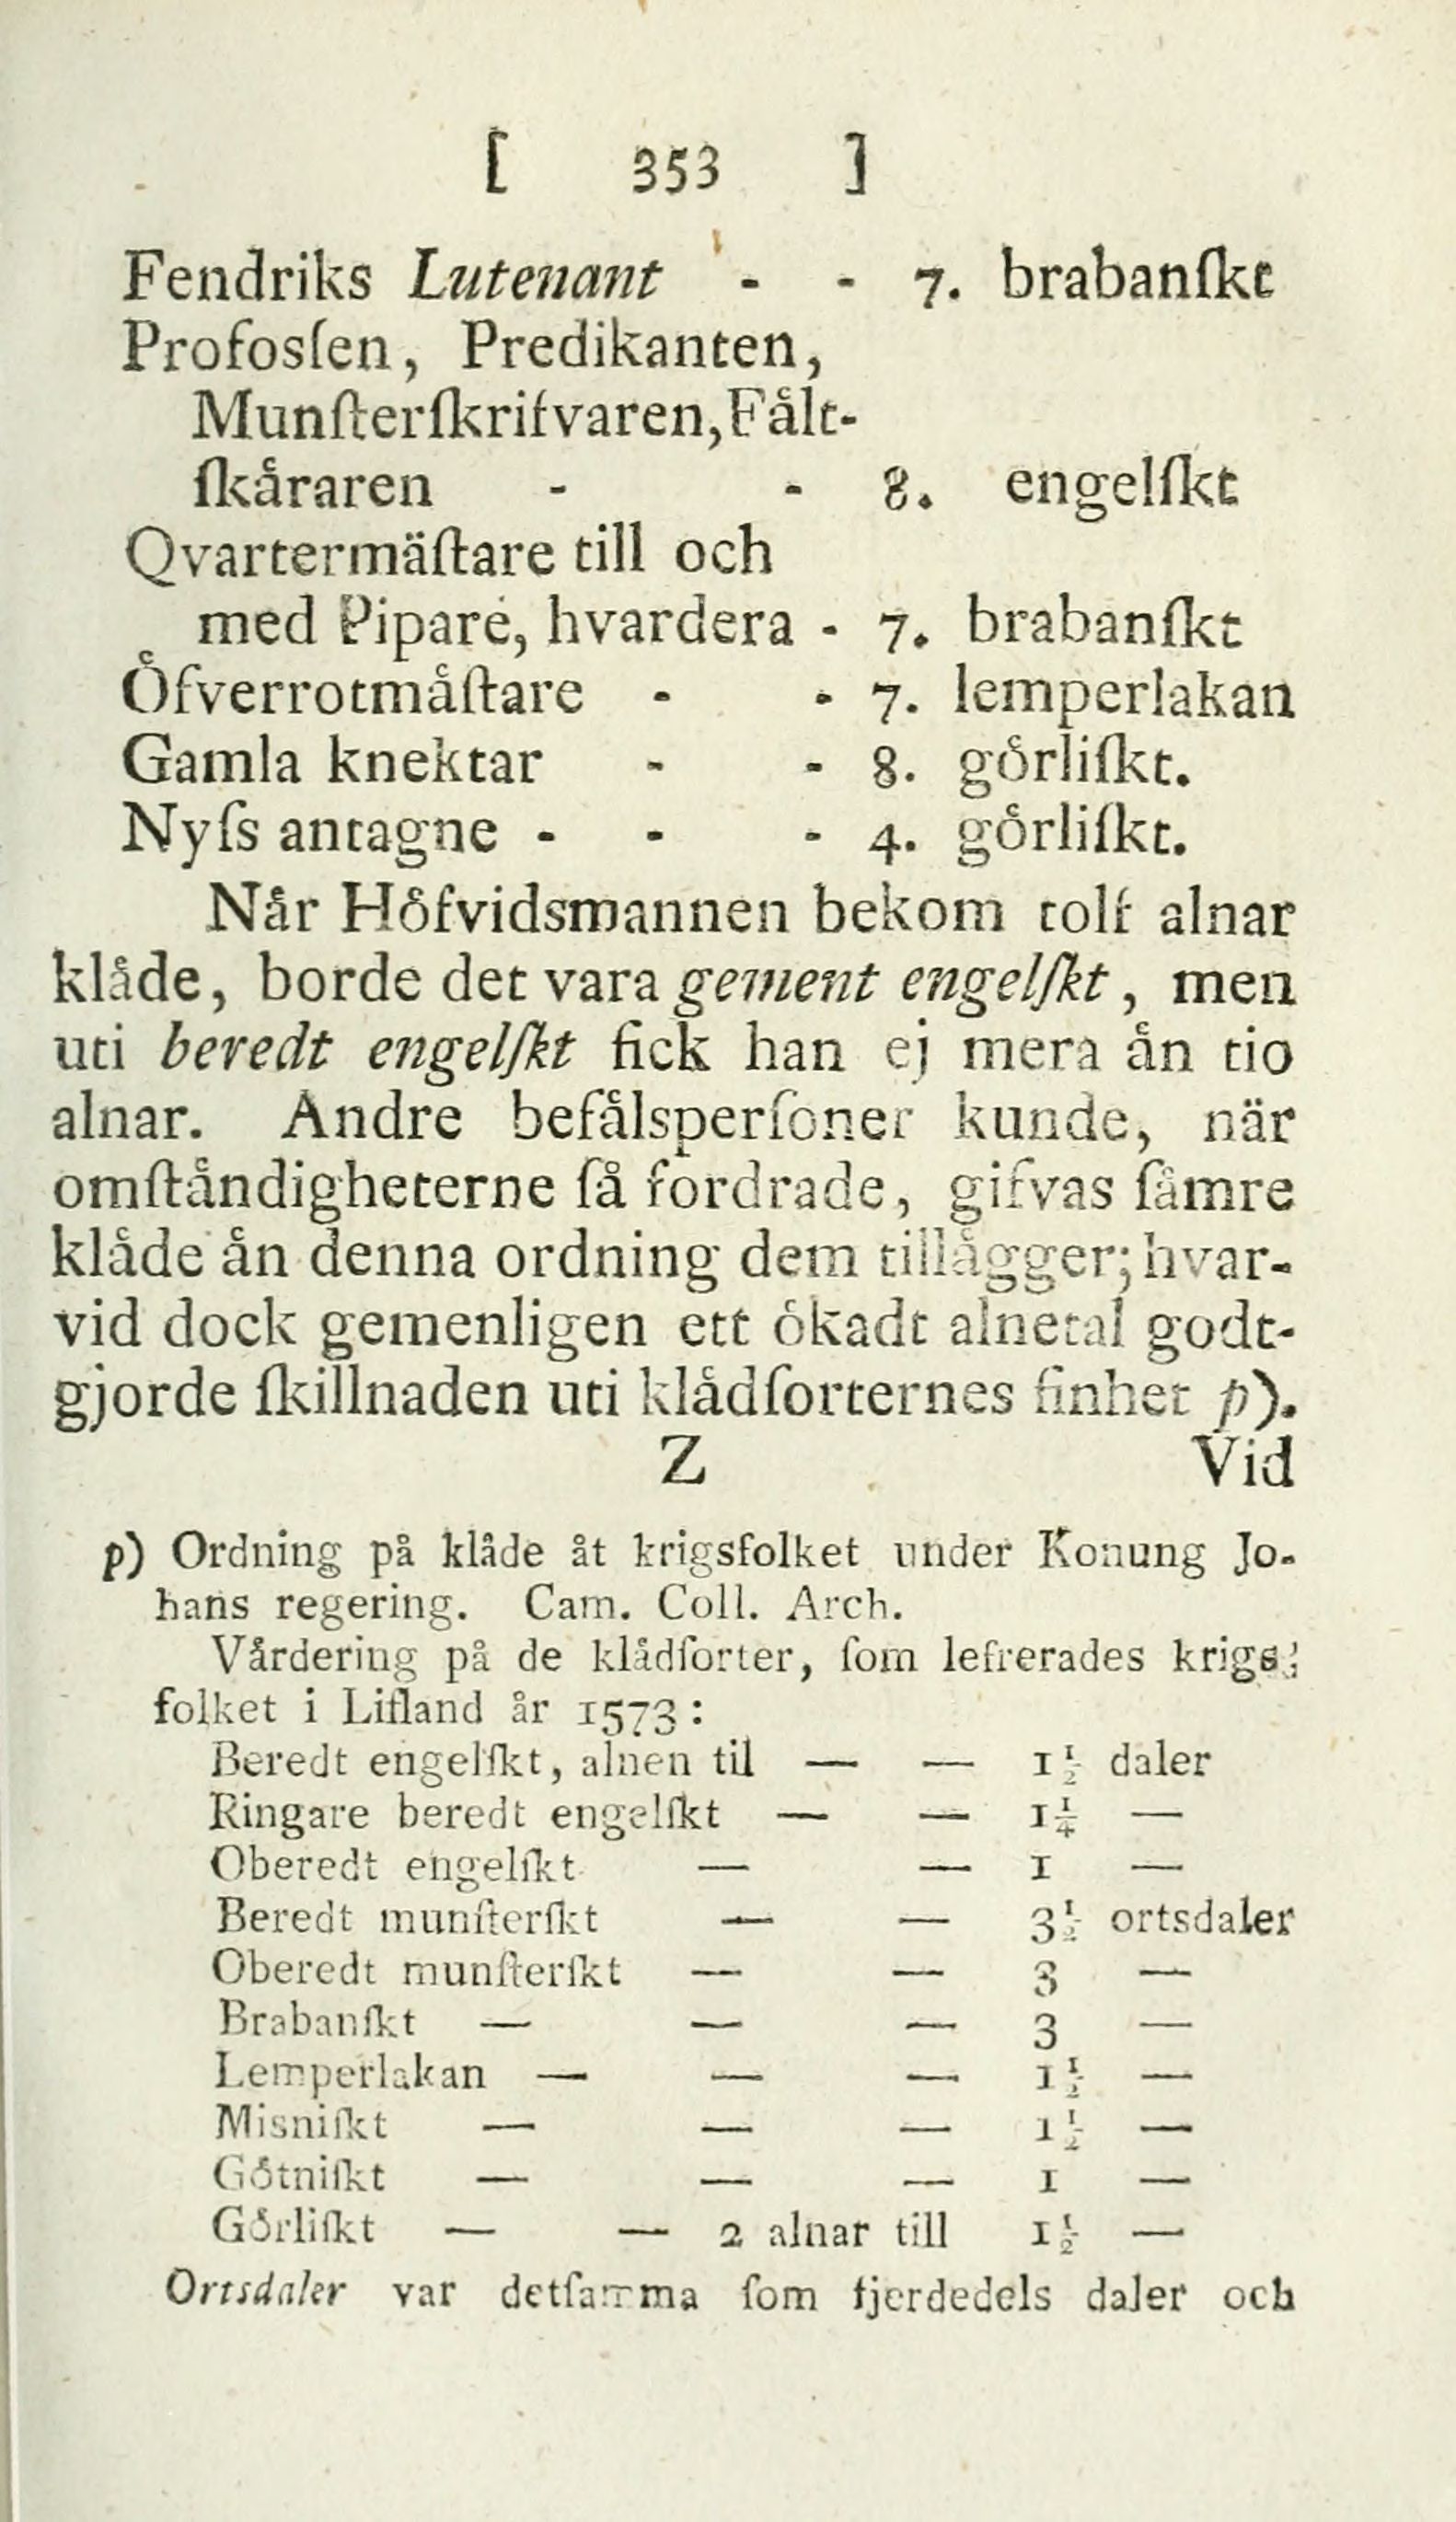 [ 353 ]
Fendriks Lutenant - - 7. brabanſkt
Profosſen, Predikanten,
Munſterſkrifvaren, Fålt-
ſkåraren - - 8. engelſkt
Qvartermäſtare till och
med Pipare, hvardera - 7. brabanſkt
Öfverrotmåſtare - - 7. lemperlakan
Gamla knektar - - 8. gôrliſkt.
Nyſs antagne - - - 4. gôrliſkt.
Når Hôfvidsmannen bekom tolf alnar
klåde, borde det vara gement engelſkt, men
uti beredt engelſkt fick han ej mera ån tio
alnar. Andre befålsperſoner kunde, när
omſtåndigheterne ſå fordrade, gifvas ſåmre
klåde ån denna ordning dem tillågger; hvar-
vid dock gemenligen ett ôkadt alnetal godt-
gjorde ſkillnaden uti klådſorternes finhet p).
Z Vid
p) Ordning på klåde åt krigsfolket under Konung Jo-
hans regering. Cam. Coll. Arch.
Vårdering på de klådſorter, ſom lefrerades krigs-
folket i Lifland år 1573:
Beredt engelſkt, alnen til — — 1½ daler
Ringare beredt engelſkt — — 1¼ —
Oberedt engelſkt — — 1 —
Beredt munſterſkt — — 3½ ortsdaler
Oberedt munſterſkt — — 3 —
Brabanſkt — — — 3 —
Lemperlakan — — — 1½ —
Misniſkt — — — 1½ —
Gôtniſkt — — — 1 —
Gôrliſkt — — 2 alnar till 1½ —
Ortsdaler var detſamma ſom fjerdedels daler och